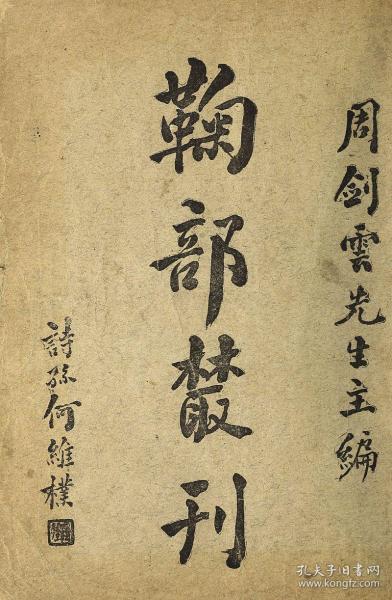 周劍雲先生主編
鞠部叢刊
詩孫何維樸
孔夫子旧书网
www.kongfz.com